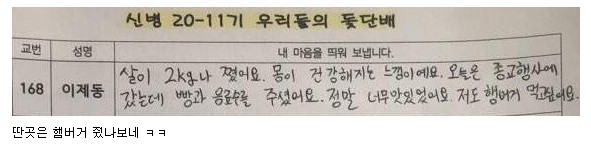 신병 20-11기 우리들의 돛단배
교번 성명 내 마음을 띄워 보냅니다.
살이 2kg나 쪘어요. 몸이 건강해지는 느낌이에요. 오늘은 종교행사에
168 이제동 갔는데 빵과 음료수를 주셨어요. 정말 너무맛있었어요. 저도 햄버거 먹고싶어요.
딴곳은 햄버거 줬나보네 ㅋㅋ